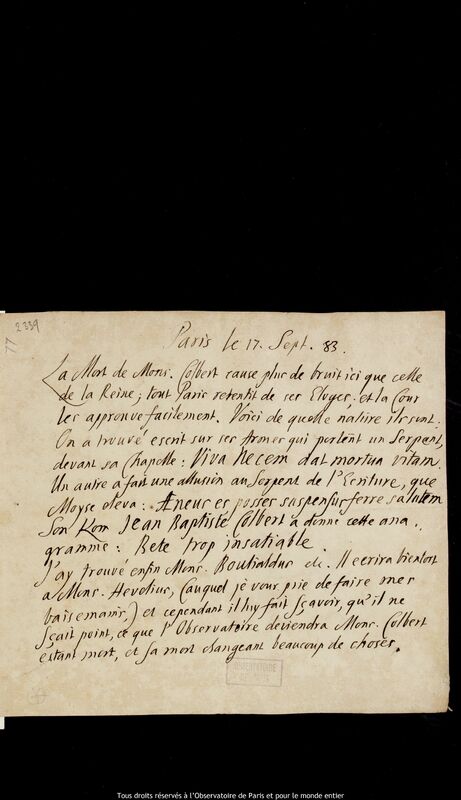 2339
77
Paris le 17. Sept. 83.
La Mort de Mons. Colbert cause plus de bruit ici que celle
de la Reine; tout Paris retentit de ses Eloges, et la Cour
les approuve facilement. Voici de quelle natûre ils sont.
On a trouvé escrit sur ses Armes qui portent un Serpent,
devant sa Chapelle: Viva Necem dat mortua vitam.
Un autre a fait une allusion au Serpent de l'Ecriture, que
Moyse eleva: Aneus es posses suspensus ferre salutem
Son Nom Jean Baptiste Colbert a donne cette ana,
gramme: Bete trop insatiable.
J'ay trouvé enfin Mons. Boulialdus &c. Il ecrira bientost
a Mons. Hevelius, (auquel je vous prie de faire mes
baisemains,) et cependant il luy fait sçavoir, qu'il ne
sçait point, ce que l'Observatoire deviendra Mons. Colbert
estant mort, et sa mort changeant beaucoup de choses.
OBSERVATOIRE
Tous droits réservés à l'Observatoire de Paris et pour le monde entier